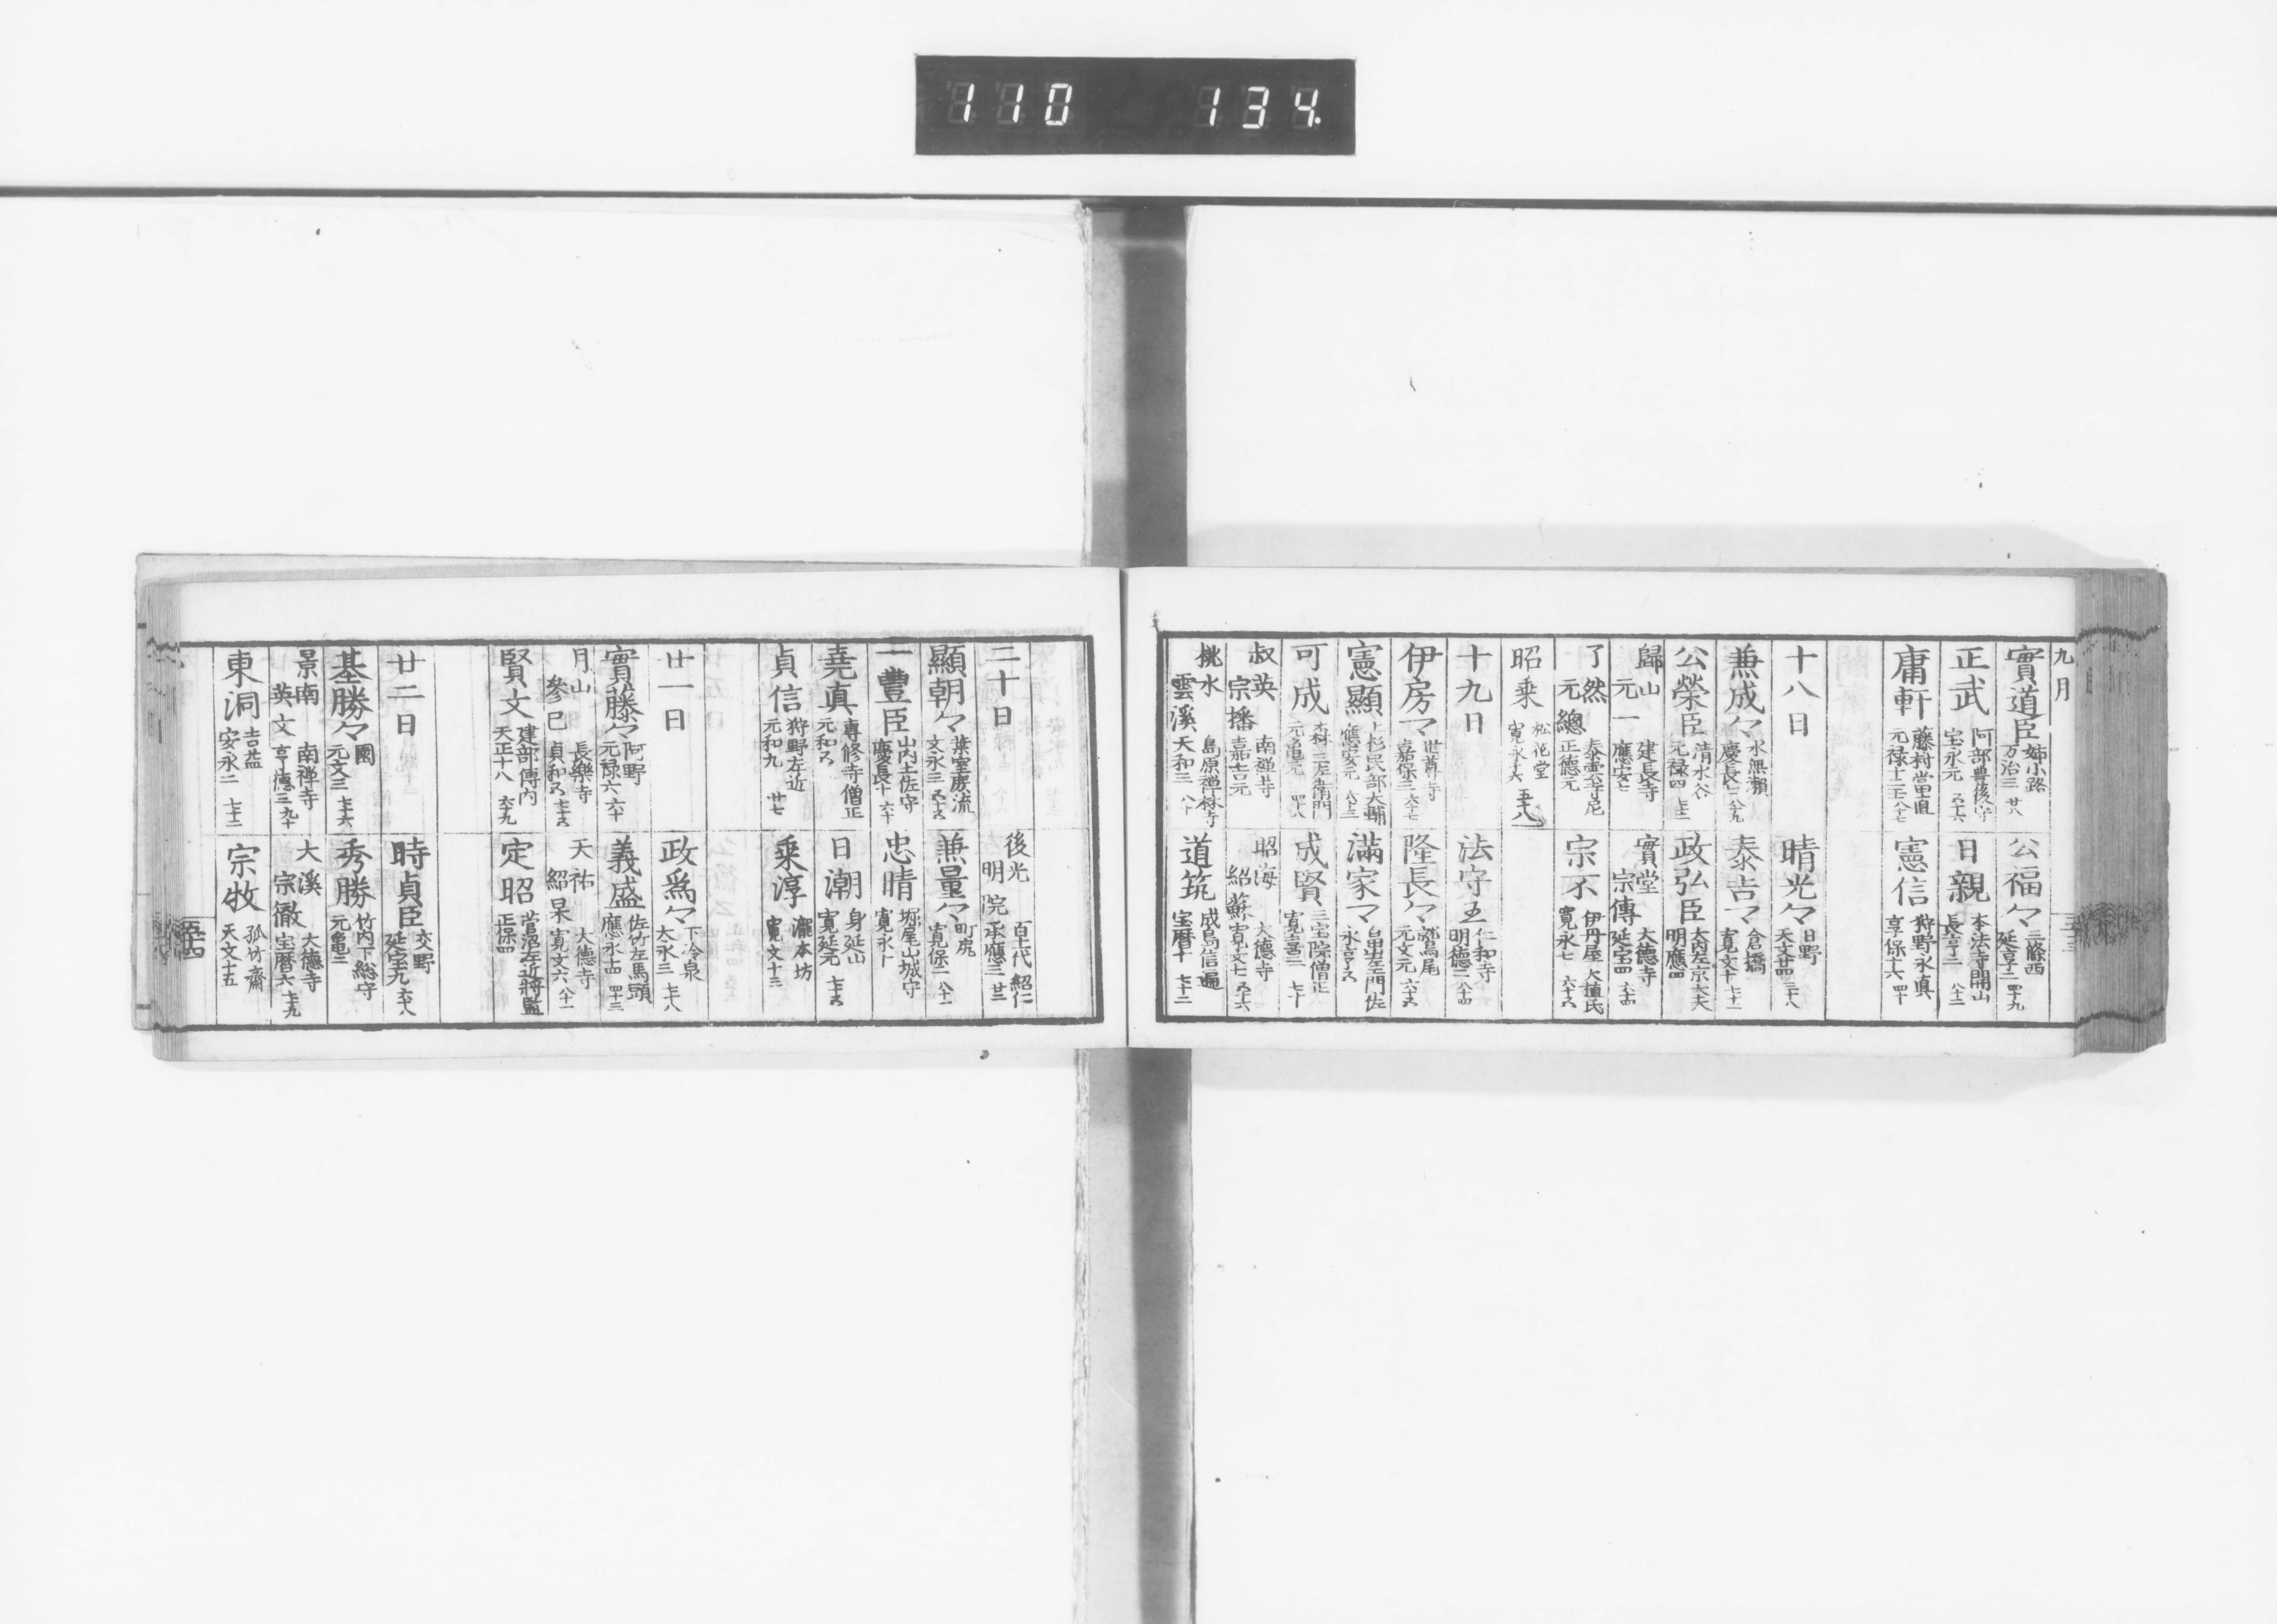 110 134.
九月
實道臣 姉小路 万治三 廿八
公福々 三條西 延享二 四十九
正武 阿部豊後守 宝永元 五十六
日親 本法寺開山 長享二 八十二
庸軒 藤村當直 元禄十二 八十七
憲信 狩野永真 享保十六 四十
十八日
晴光々 日野 天文廿四 三十八
兼成々 水無瀬 慶長七 八十九
泰吉マ 倉橋 寛文十 七十二
公榮臣 清水谷 元禄四
政弘臣 大内左京大夫 明應四
歸山 元一 建長寺 應安七
實堂 宗傳 大德寺 延宝四 六十四
了然 元總 泰雲寺尼 正德元
宗不 伊丹屋 大植氏 寛永七 六十六
昭乗 松花堂 寛永十六 五十八
十九日
法守五 仁和寺 明德二 八十四
伊房マ 世尊寺 嘉保三 六十七
隆長々 鷲尾 元文元 六十五
憲顯 上杉民部大輔 應安元 六十三
滿家マ 畠山左衛門佐 永享五
可成 森三左衛門 元亀元 四十八
成賢 三宝院僧正 寛喜三 七十
叔英 宗播 南禅寺 嘉吉元
昭海 紹蘇 大德寺 寛文七 五十六
桃水 雲溪 島原禅林寺 天和三 八十
道筑 成島信遍 宝曆十 七十二
二十日
後光明院 百十代 紹仁 承應三 廿二
顯朝々 葉室庶流 文永三 五十五
兼量々 町尻 寛保二 八十一
一豊臣 山内土佐守 慶長十 六十
忠晴 堀尾山城守 寛永十
堯真 專修寺僧正 元和六
日潮 身延山 寛延元 七十五
貞信 狩野左近 元和九 廿七
乗淳 瀧本坊 寛文十三
廿一日
政爲々 下冷泉 大永三 七十八
實藤々 阿野 元禄六 六十
義盛 佐竹左馬頭 應永十四 四十三
月山 參巳 長樂寺 貞和五 七十五
天祐 紹杲 大德寺 寛文六 八十一
賢文 建部傳内 天正十八 六十九
定昭 菅沼左近將監 正保四
廿二日
時貞臣 交野 延宝九 六十八
基勝々 園 元文三 七十六
秀勝 竹内下総守 元亀二
景南 英文 南禅寺 亨德三 九十
大溪 宗徹 大德寺 宝曆六 七十九
東洞 吉益 安永二 七十二
宗牧 孤竹齋 天文十五
五十四